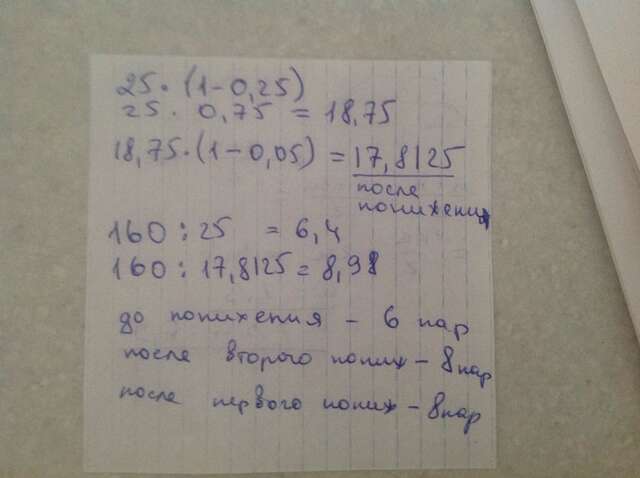 25 · (1-0,25)
25 · 0,75 = 18,75
18,75·(1-0,05) = 17,8125
после
понижения
160 : 25 = 6,4
160 : 17,8125 = 8,98
до понижения - 6 пар
после второго пониж - 8 пар
после первого пониж - 8 пар